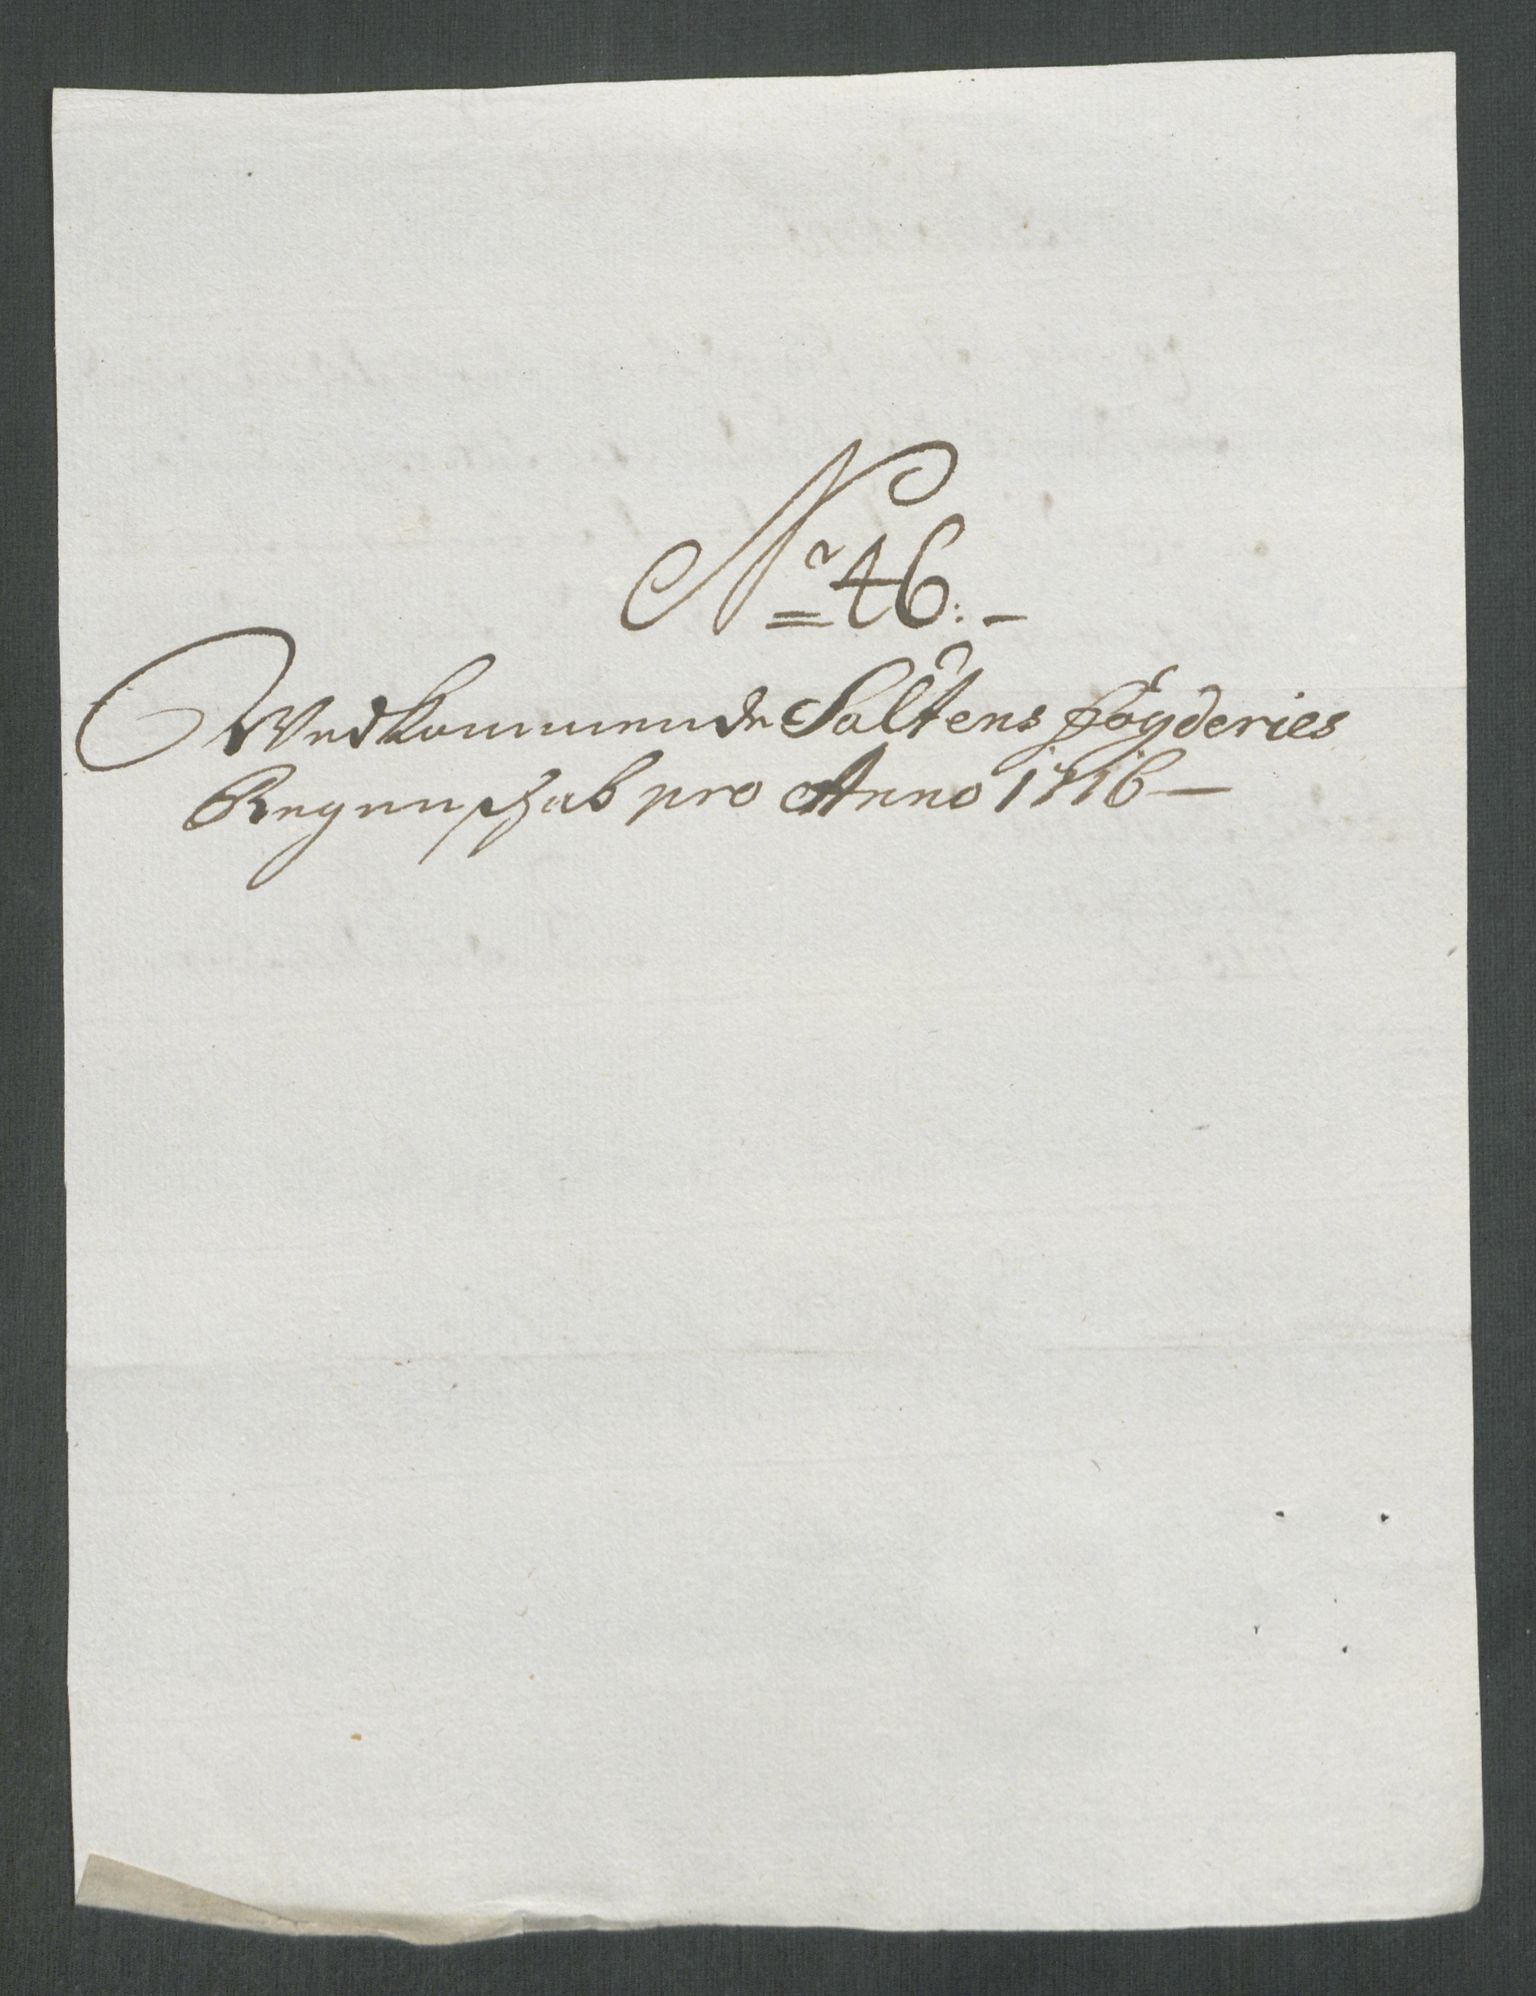 No 46:-
Wedkommende Saltens fogderies
Regenschab pro Anno 1716 —